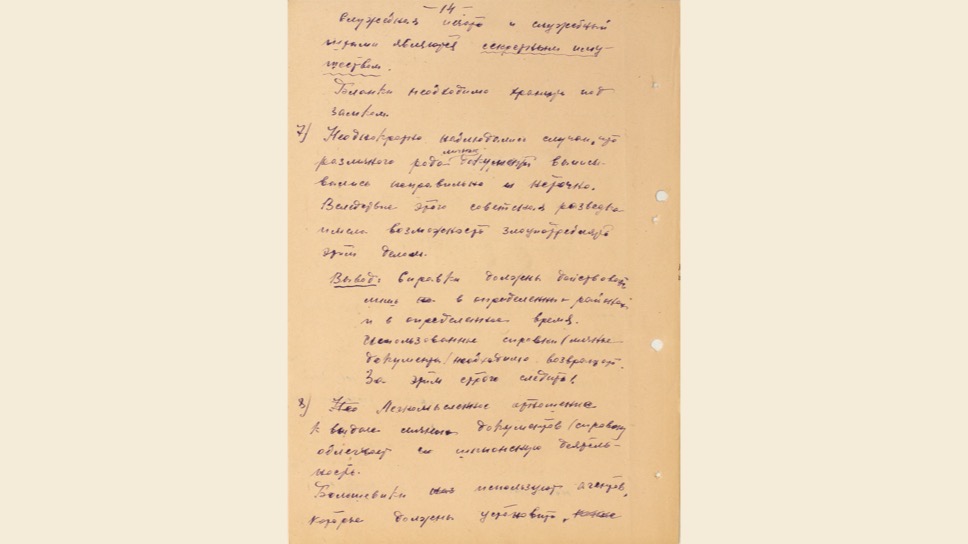 —14—
Служебная печать и служебный
письма являются секретным иму-
ществом.
Бланки необходимо хранить под
замком.
7) Неоднократно наблюдались случаи, что
различного рода личные документы выписы-
вались неправильно и неточно.
Вследствие этого советская разведка
имела возможность злоупотреблять
этим делом.
Вывод: Справки должны действовать
лишь в определенных районах
и в определенное время.
Использованные справки/личные
документы/необходимо возвращать.
За этим строго следить!
8) Легкомысленное отношение
к выдаче личных документов/справок/
облегчает шпионскую деятель-
ность.
Большевики используют агентов,
которые должны установить,